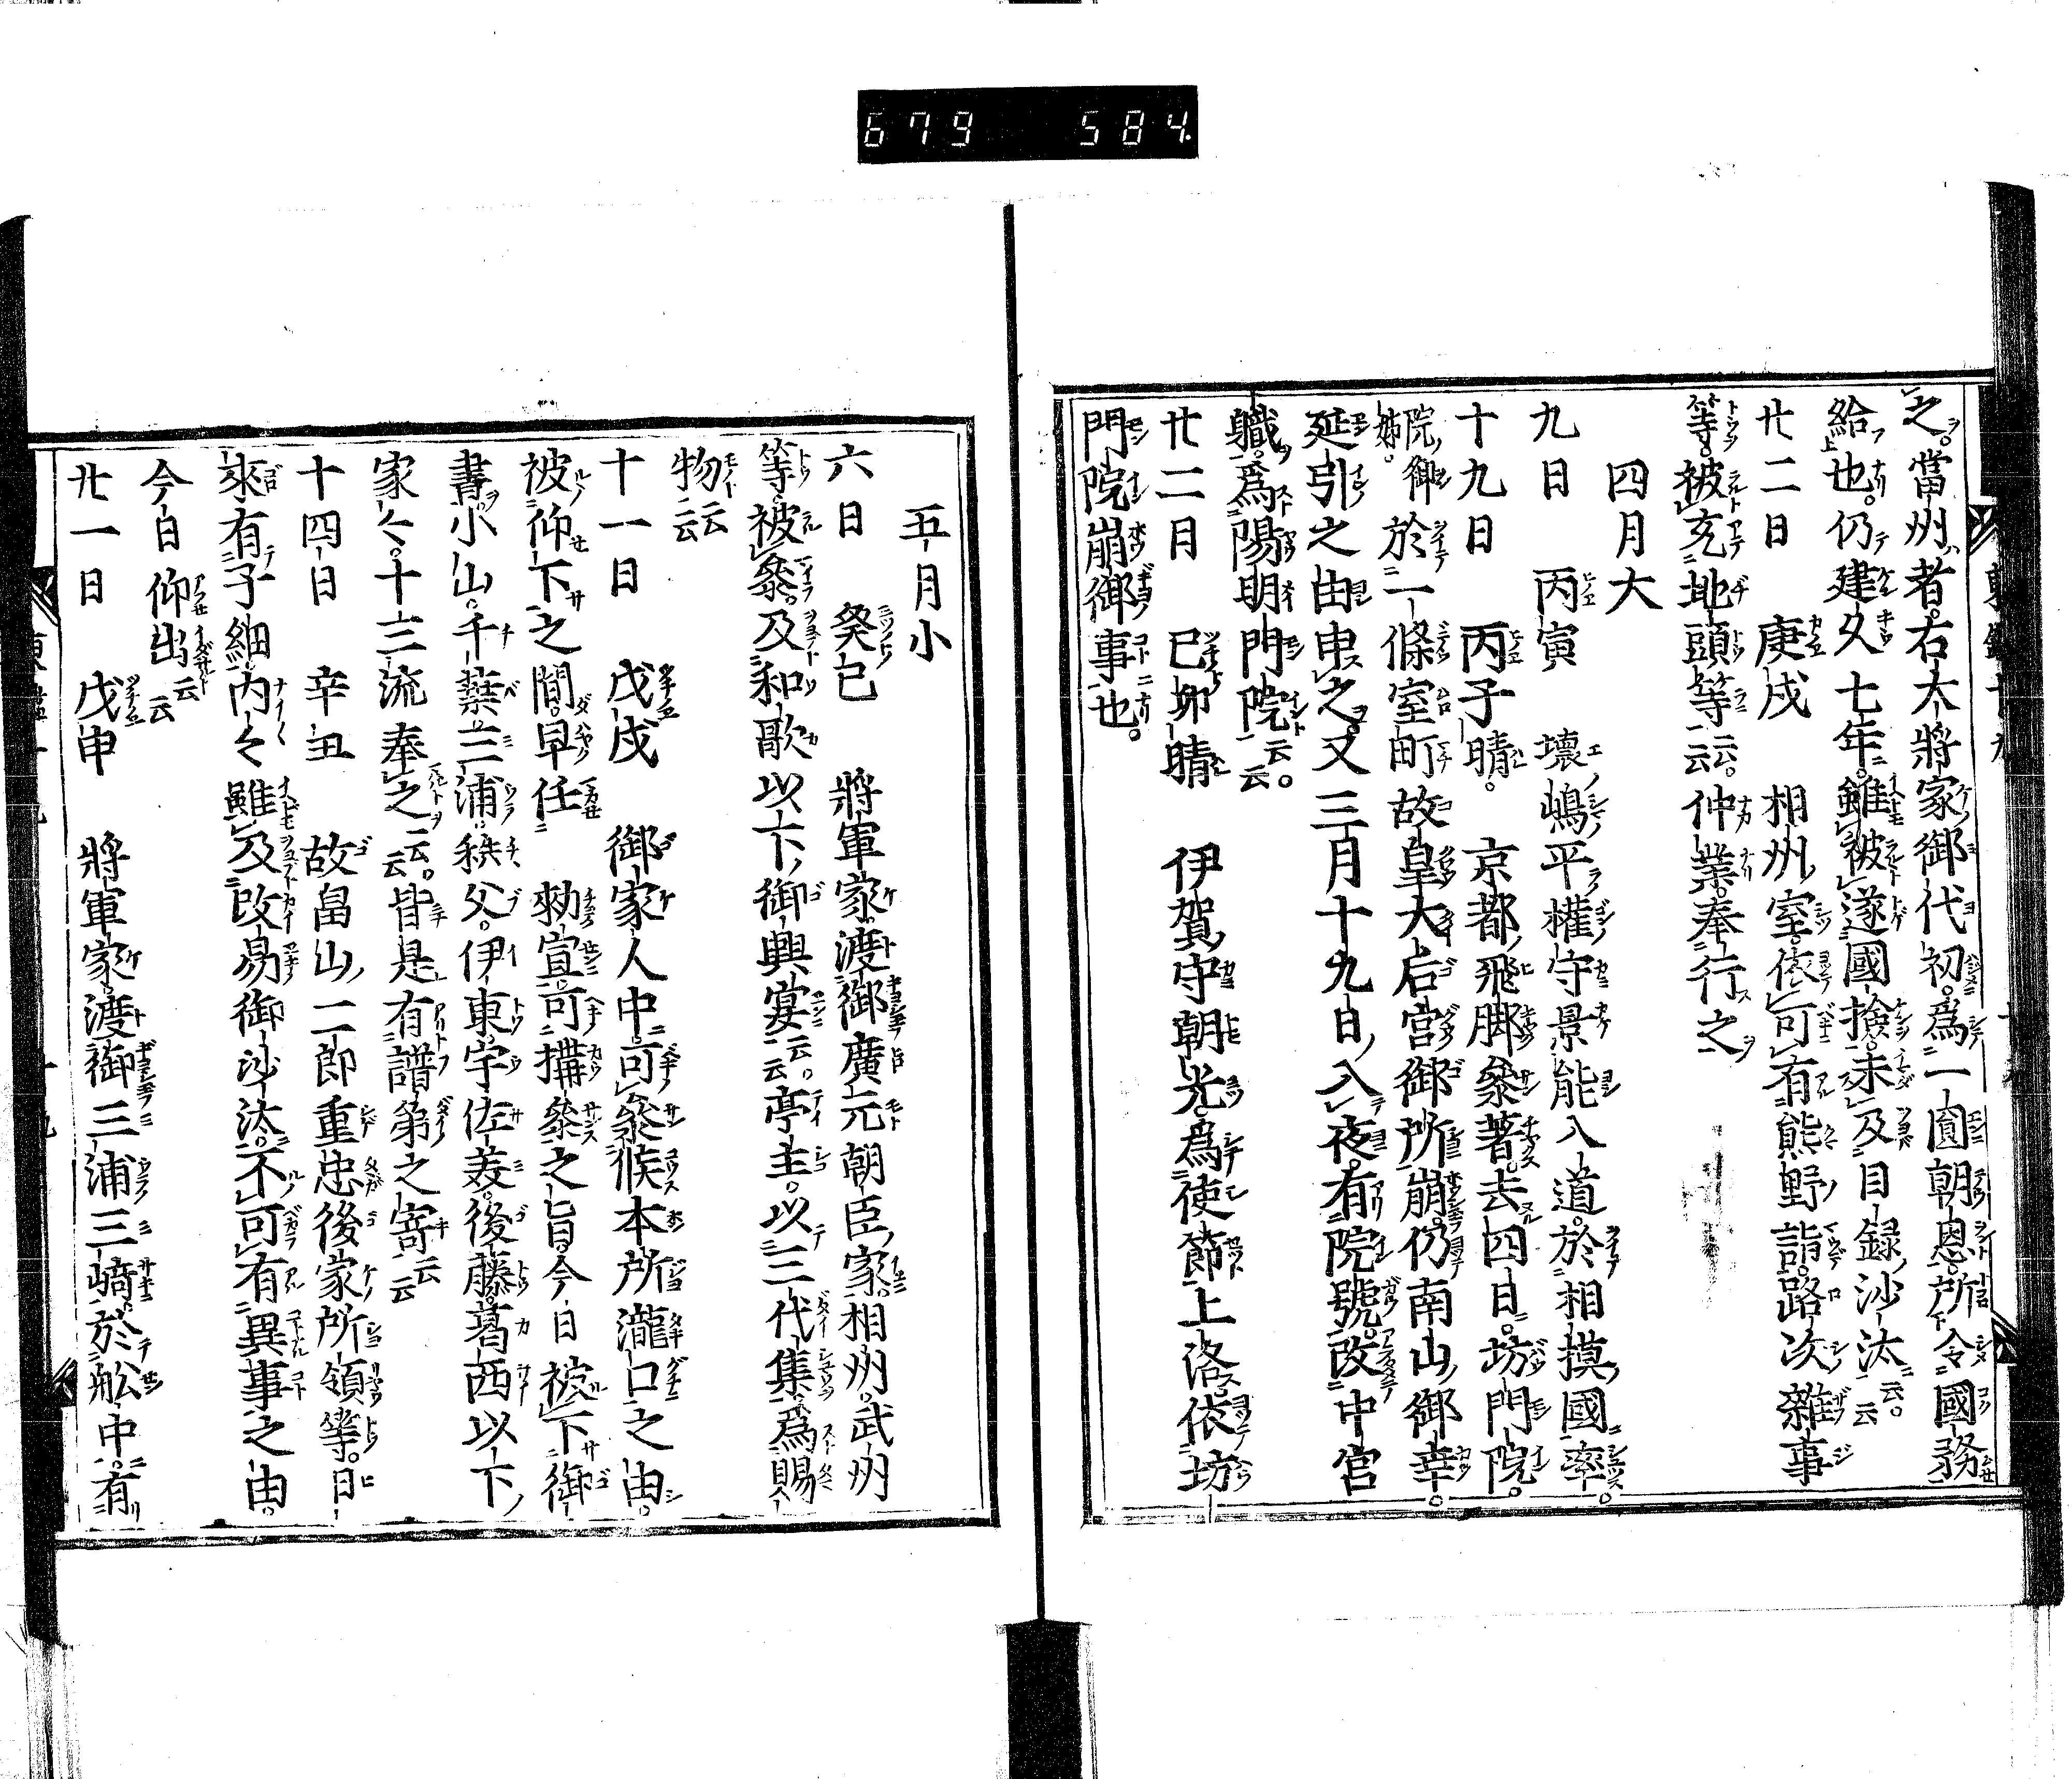 679 584.
之。當州者。右大將家御代初。爲一圓朝恩。所令國務
給也。仍建久七年。雖被遂國撿。未及目錄沙汰云云。
廿二日 庚戌 相州室。依可有熊野詣。路次雜事
等。被充地頭等云云。仲業奉行之
四月大
九日 丙寅 壞嶋平權守景能入道。於相摸國率。
十九日 丙子晴。 京都飛脚參著。去四日。坊門院。
院御姊。於一條室町故皇大后宮御所崩。仍南山御幸。
延引之由申之。又三月十九日入夜。有院號。改中宮
職。爲陽明門院云云。
廿二日 己卯晴 伊賀守朝光。爲使節上洛。依坊
門院崩御事也。
五月小
六日 癸巳 將軍家渡御廣元朝臣家。相州。武州
等被參。及和歌以下御興宴云云。亭主。以三代集爲賜
物云云
十一日 戊戌 御家人中。可參候本所瀧口之由。
被仰下之間。早任 勅宣。可搆參之旨。今日被下御
書。小山。千葉。三浦。秩父。伊東。宇佐美。後藤。葛西以下
家々。十三流奉之云云。皆是有譜第之寄云云
十四日 辛丑 故畠山二郎重忠後家所領等。日
來有子細。内々雖及改易御沙汰。不可有異事之由。
今日仰出云云
廿一日 戊申 將軍家渡御三浦三﨑。於舩中。有